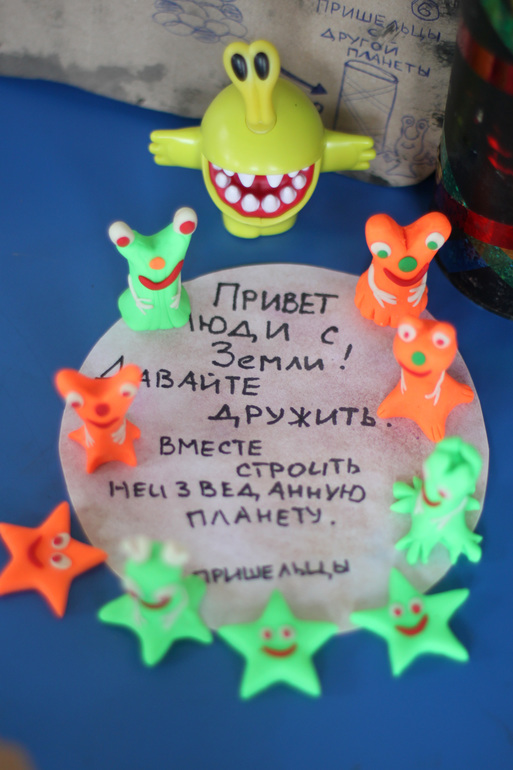 ПРИШЕЛЬЦЫ
С
ДРУГОЙ
ПЛАНЕТЫ
ПРИВЕТ
ЛЮДИ С
Земли!
ДАВАЙТЕ
ДРУЖИТЬ.
ВМЕСТЕ
СТРОИТЬ
НЕИЗВЕДАННУЮ
ПЛАНЕТУ.
ПРИШЕЛЬЦЫ